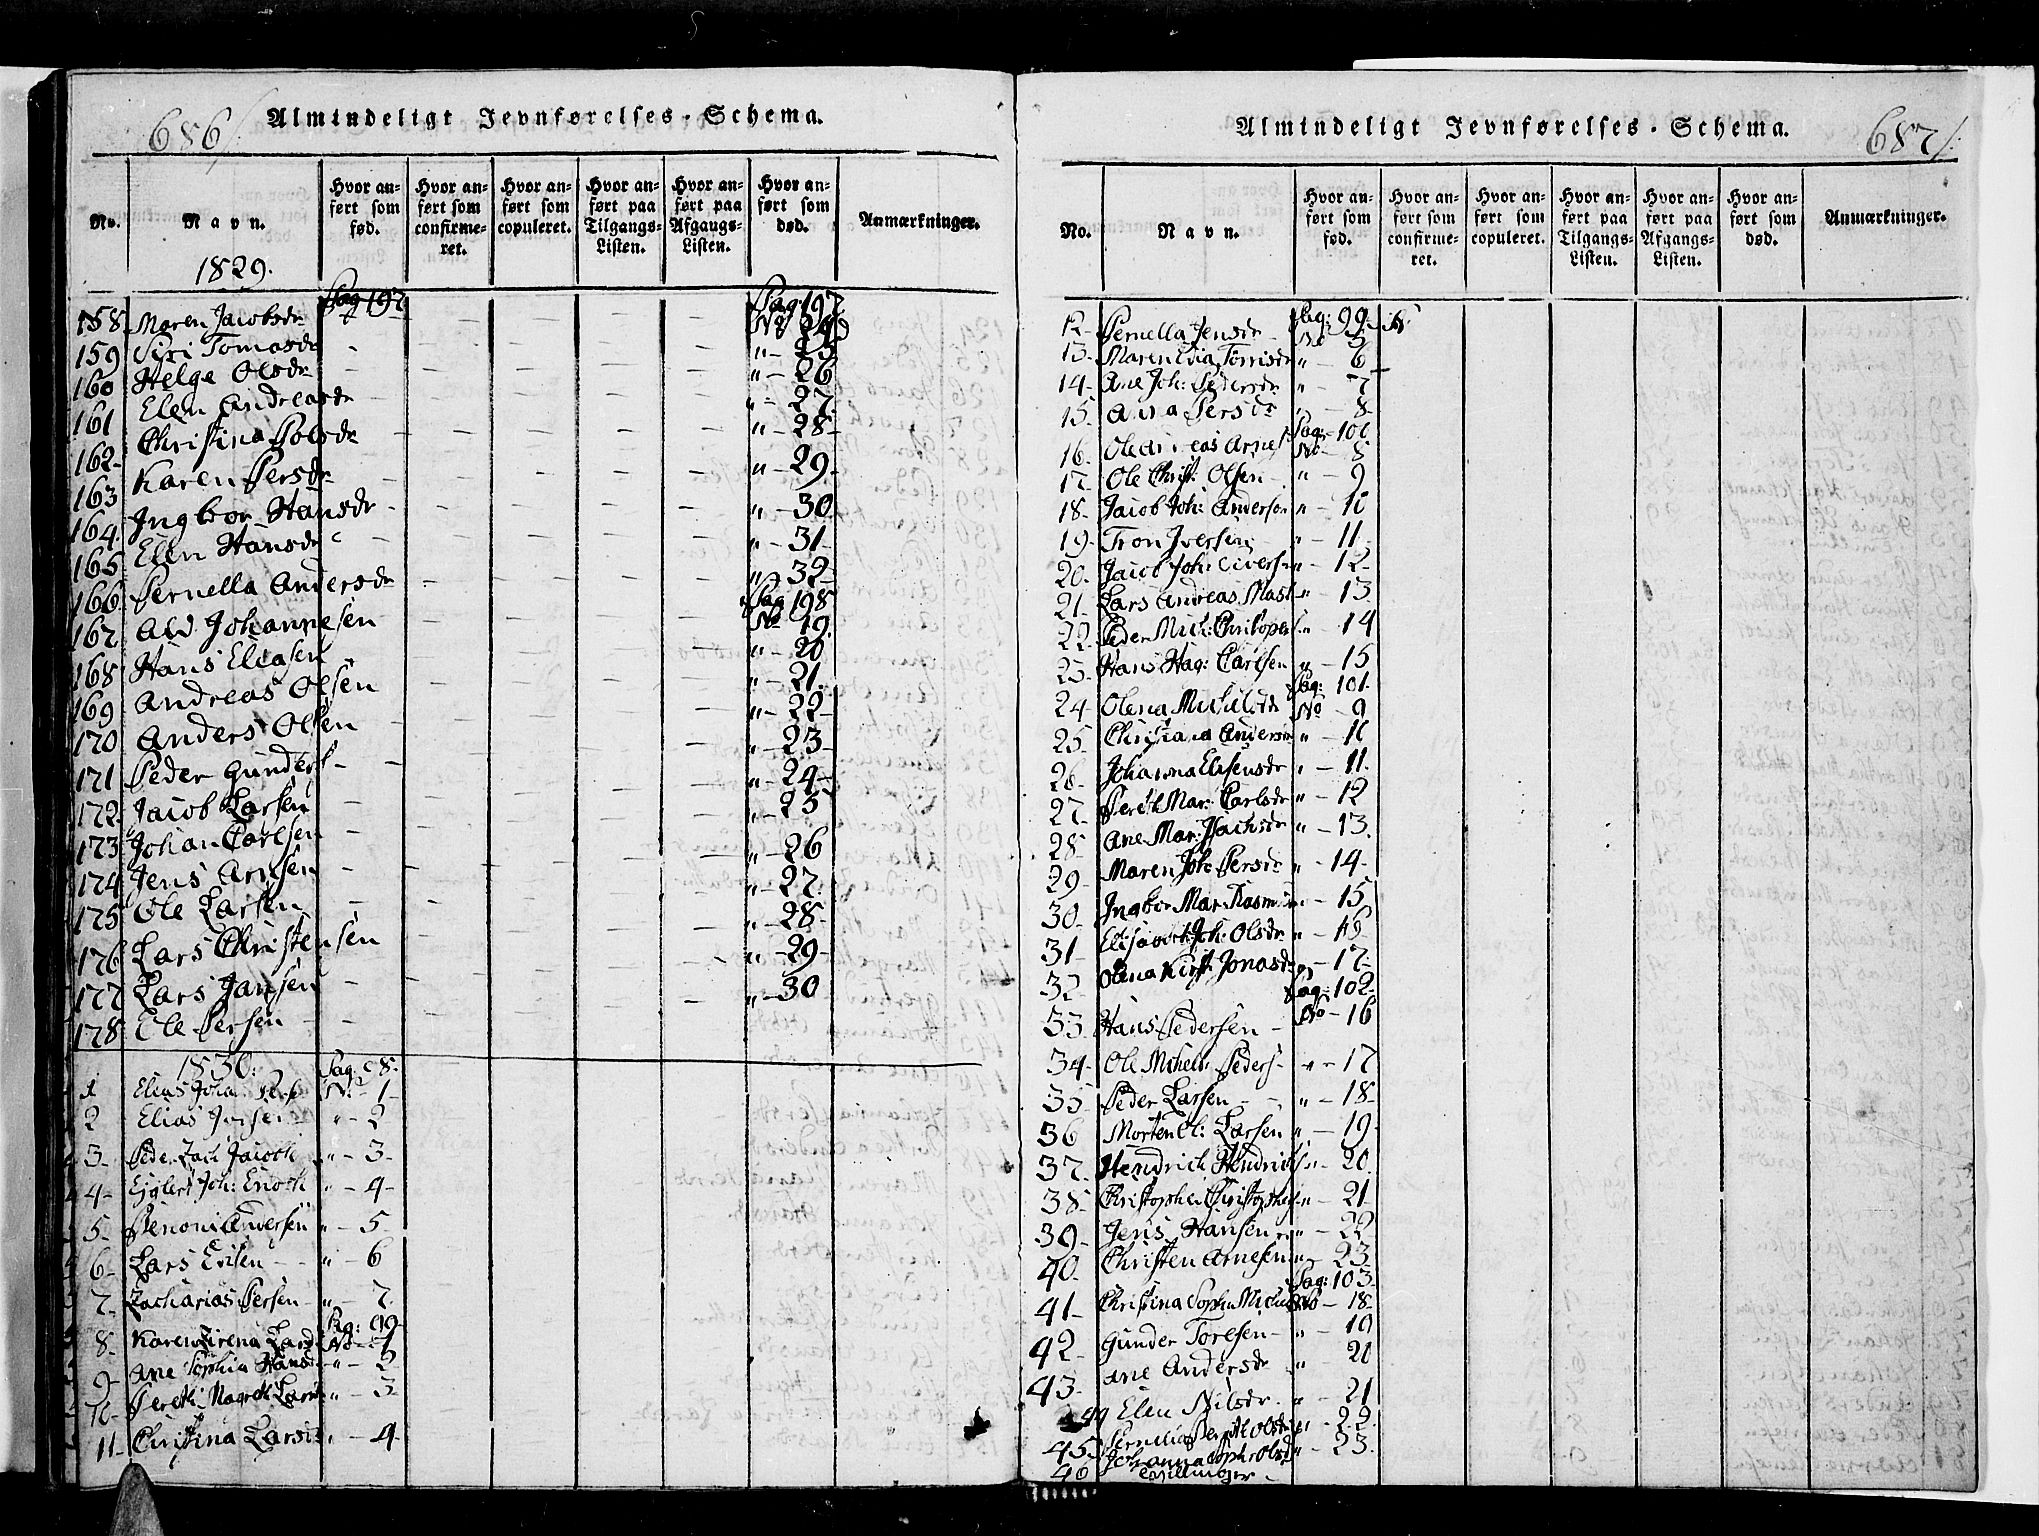 686/
Almindeligt Jevnførelses-Schema.
No. Navn. Hvor anført som fød. Hvor anført som confirmeret. Hvor anført som copuleret. Hvor anført paa Tilgangs-Listen. Hvor anført paa Afgangs-Listen. Hvor anført som død. Anmærkninger.
1829.
158. Maren Jacobsdr Pag 197 Pag 197 No 24
159 Siri Tomasdr " 25
160 Helge Olsdr " 26
161 Elen Andreasdr " 27
162 Christina Polsdr " 28
163 Karen Persdr " 29
164 Ingbor Hansdr " 30
165 Elen Hansdr " 31
166 Pernella Andersdr " 32
Pag 198
167 Ald Johannesen No 19
168 Hans Eliasen " 20
169 Andreas Olsen " 21
170 Anders Olsen " 22
171 Peder Gunders " 23
172 Jacob Larsen " 24
173 Johan Carlsen " 25
174 Jens Arnsen " 26
175 Ole Larsen " 27
176 Lars Christensen " 28
177 Lars Jansen " 29
178 Ole Persen " 30
1830. Pag: 98.
1 Elias Johan Pers No 1
2 Elias " 2
3 Peder Zach Jacobs " 3
4 Eiglert Joh: Enoch " 4
5 Benoni Andersen " 5
6 Lars Erilsen " 6
7 Zacharias Persen " 7
Pag: 99
8 Karen Sirena Larsd No 1
9 Ane Sophia Hansd " 2
10 Bereth Magreth Larsd " 3
11 Christina Larsd " 4
Almindeligt Jevnførelses-Schema.
687/
No. Navn. Hvor anført som fød. Hvor anført som confirmeret. Hvor anført som copuleret. Hvor anført paa Tilgangs-Listen. Hvor anført paa Afgangs-Listen. Hvor anført som død. Anmærkninger.
Pag: 99
12 Pernella Jensdr No 5
13 Maren Torrisdr " 6
14 Ane Joh: Pedersdr " 7
15 Persdr " 8
Pag: 100
16 Ole Arnes No 8
17 Ole Christ: Olsen " 9
18 Jacob Joh: Anderson " 10
19 Tron Iversen " 11
20 Jacob Joh: Siversen " 12
21 Lars Andreas Mast " 13
22 Peder Mich: Christophers " 14
23 Hans Hag: Carlsen " 15
Pag: 101
24 Olena No 9
25 Anders " 10
26 Johanna " 11
27 Bereth Mar: Carlsdr " 12
28 Ane Mar: Isachsdr " 13
29 Maren Joh: Persdr " 14
30 Ingbor Mar: " 15
31 Joh: Olsdr " 16
32 Olena Kirst: Jonasdr " 17
Pag: 102
33 Hans Pedersen No 16
34 Ole Michel: Peders " 17
35 Peder Larsen " 18
36 Morten El: Larsen " 19
37 Hendrich Hendrichs " 20
38 Christopher Christophers " 21
39 Jens Hansen " 22
40 Christen Arnesen " 23
Pag: 103
41 Christina Sophia No 18
42 Gunder Toresen " 19
43 Ane Andersdr " 20
44 Elen Nilsdr " 21
45 Bereth Olsdr " 22
46 Johanna Soph: Olsdr " 23
Tvillinger